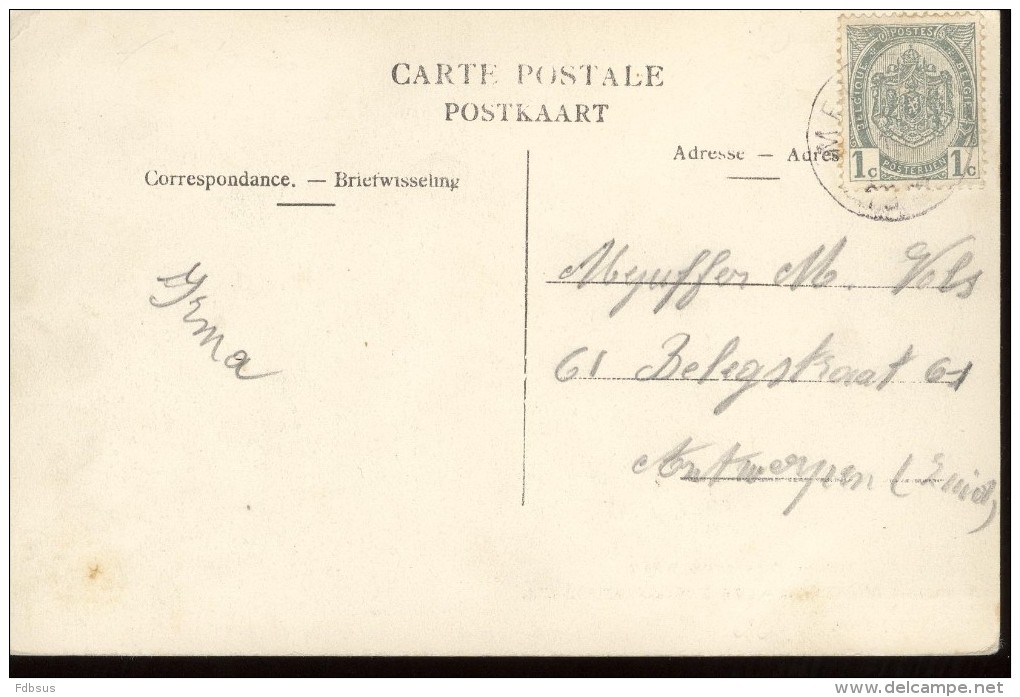 CARTE POSTALE
POSTKAART
POSTES
BELGIQUE
BELGIË
1c POSTERIJEN 1c
Adresse — Adres
Correspondance. — Briefwisseling
Irma
Mejuffer M. Vols
61 Belegstraat 61
Antwerpen (Zuid)
Fdbsus
delcampe.net